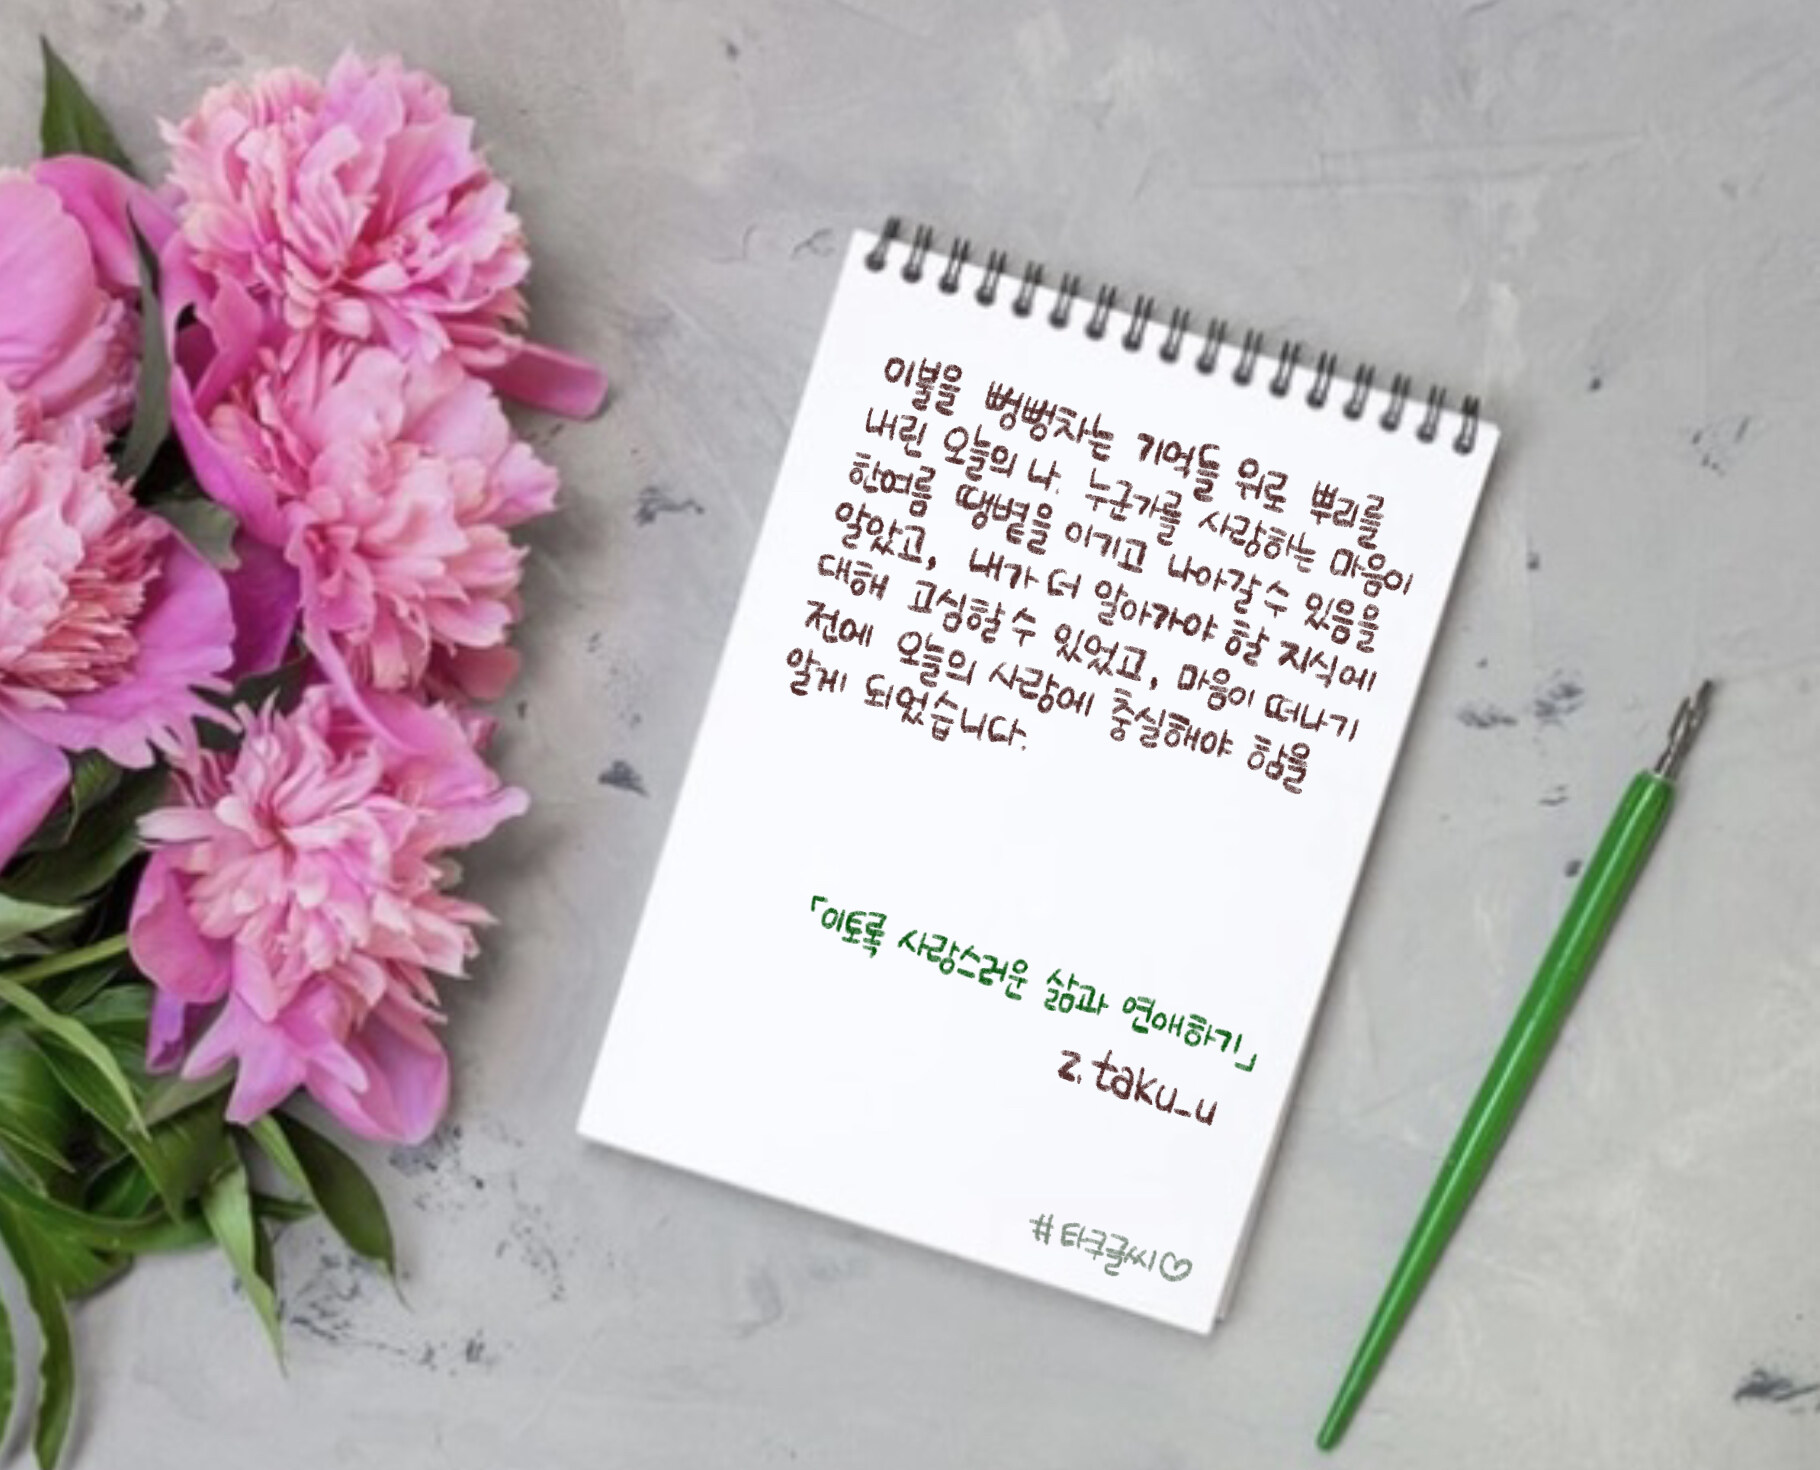 이불을 뻥뻥차는 기억들 위로 뿌리를
내린 오늘의 나. 누군가를 사랑하는 마음이
한여름 땡볕을 이기고 나아갈 수 있음을
알았고, 내가 더 알아가야 할 지식에
대해 고심할 수 있었고, 마음이 떠나기
전에 오늘의 사랑에 충실해야 함을
알게 되었습니다.
「이토록 사랑스러운 삶과 연애하기」
z. taku_u
#타쿠글씨♡